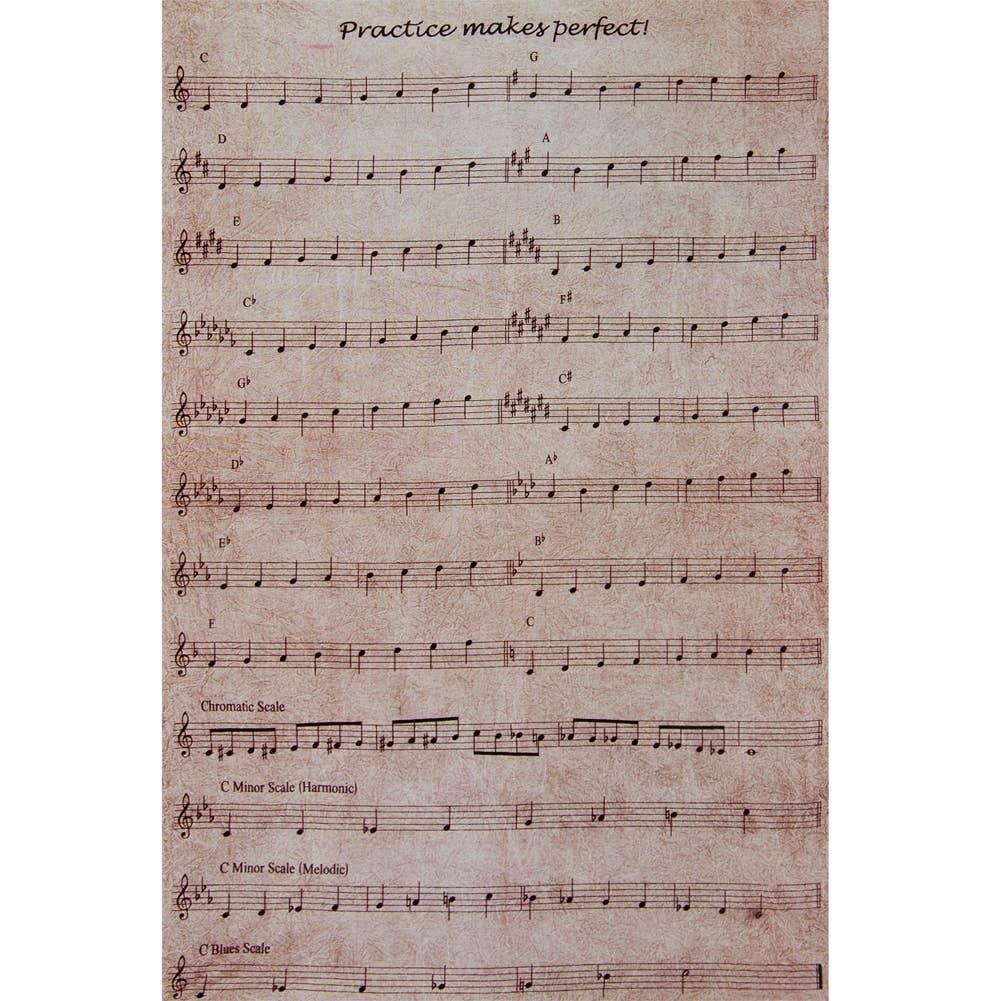 Practice makes perfect!
C G
D A
E B
C♭ F#
G♭ C#
D♭ A♭
E♭ B♭
F C
Chromatic Scale
C Minor Scale (Harmonic)
C Minor Scale (Melodic)
C Blues Scale